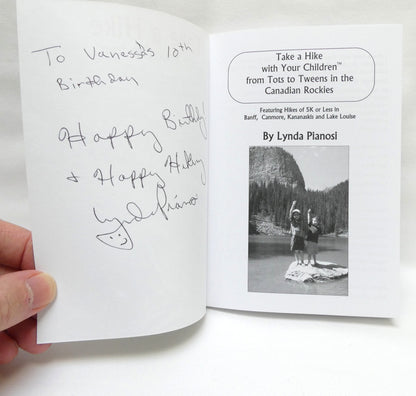 To Vanessa's 10th
Birthday
Happy Birthday!
+ Happy Hiking
Lynda Pianosi
Take a Hike
with Your Children™
from Tots to Tweens in the
Canadian Rockies
Featuring Hikes of 5K or Less in
Banff, Canmore, Kananaskis and Lake Louise
By Lynda Pianosi